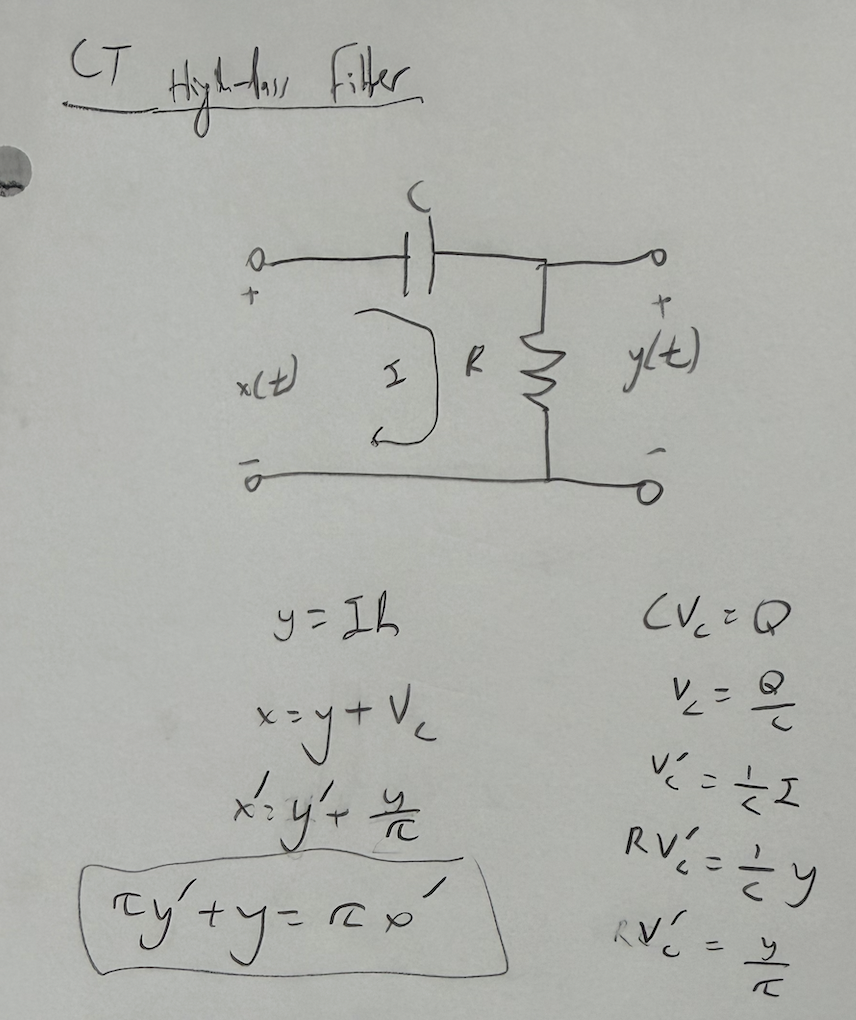 CT High-Pass Filter
C
+ +
x(t) I R y(t)
- -
y = IR
x = y + V_c
x' = y' + y/τ
τy' + y = τx'
CV_c = Q
V_c = Q/C
V_c' = 1/C I
RV_c' = 1/C y
RV_c' = y/τ